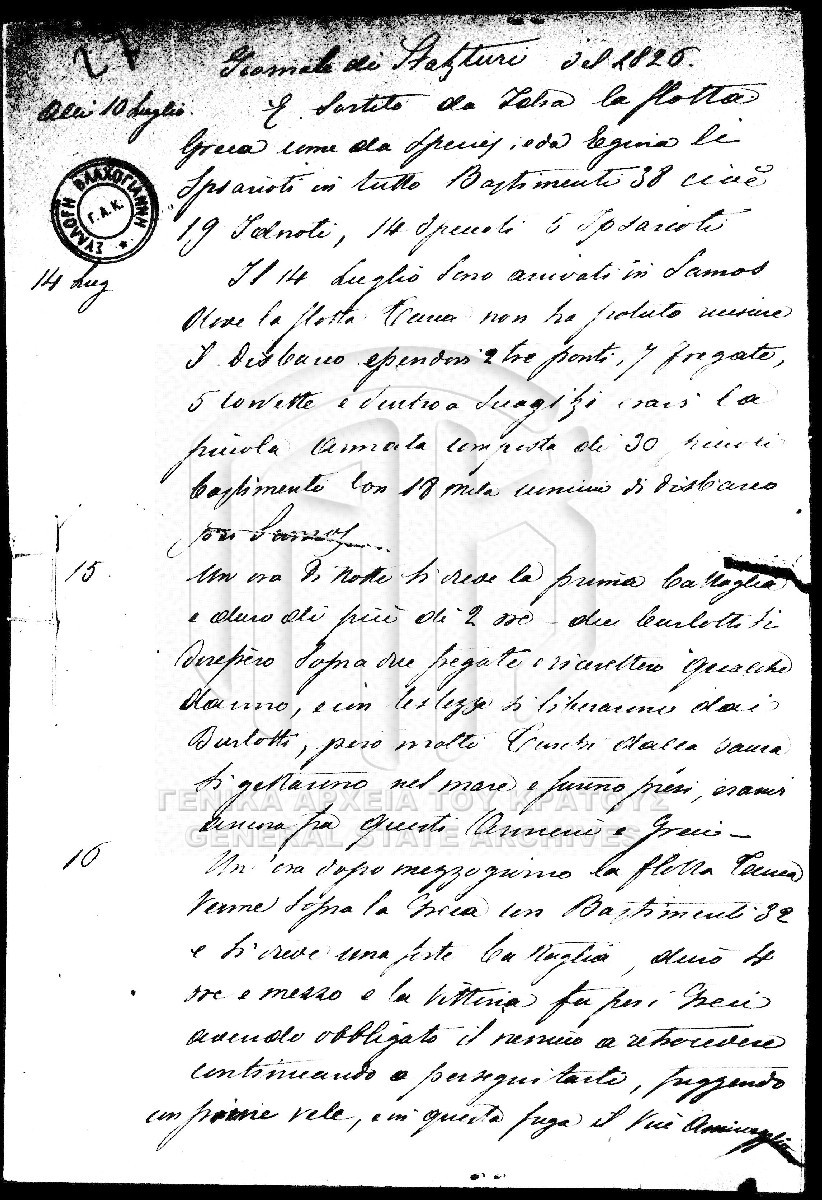 27
Giornale di Statzturi del 1826.
Alli 10 Luglio.
È sortito da Idra la flotta
Greca come da Spezies, e da Egina li
Ipsarioti in tutto Bastimenti 38 cioè
19 Idrioti, 14 Speziotti 5 Ipsarioti
ΣΥΛΛΟΓΗ ΒΛΑΧΟΓΙΑΝΝΗ
Γ.Α.Κ.
14 Lug
Il 14 Luglio sono arrivati in Samos
dove la flotta Turca non ha potuto
Il Disbarco 2 tre ponti, 7 fregate,
5 Corvette e dentro a la
piccola armata composta di 30 piccoli
bastimenti con 18 mila uomini di disbarco
per Samos
15
Un ora di notte si diede la prima battaglia
e durò di più di 2 ore - due burlotti si
sopra due fregate e qualche
danno, e con si liberarono dai
Burlotti, però molti Turchi dalla paura
si gettarono nel mare e furono presi,
ancora fra questi Armeni e Greci -
ΓΕΝΙΚΑ ΑΡΧΕΙΑ ΤΟΥ ΚΡΑΤΟΥΣ
GENERAL STATE ARCHIVES
16
Un'ora dopo mezzogiorno la flotta Turca
venne sopra la Greca con Bastimenti 32
e si diede una forte battaglia, durò 4
ore e mezzo e la vittoria fu per i Greci
avendo obbligato il nemico a retrocedere
continuando a perseguitarli, fuggendo
con piene vele, e in questa fuga il Vice Amiraglio